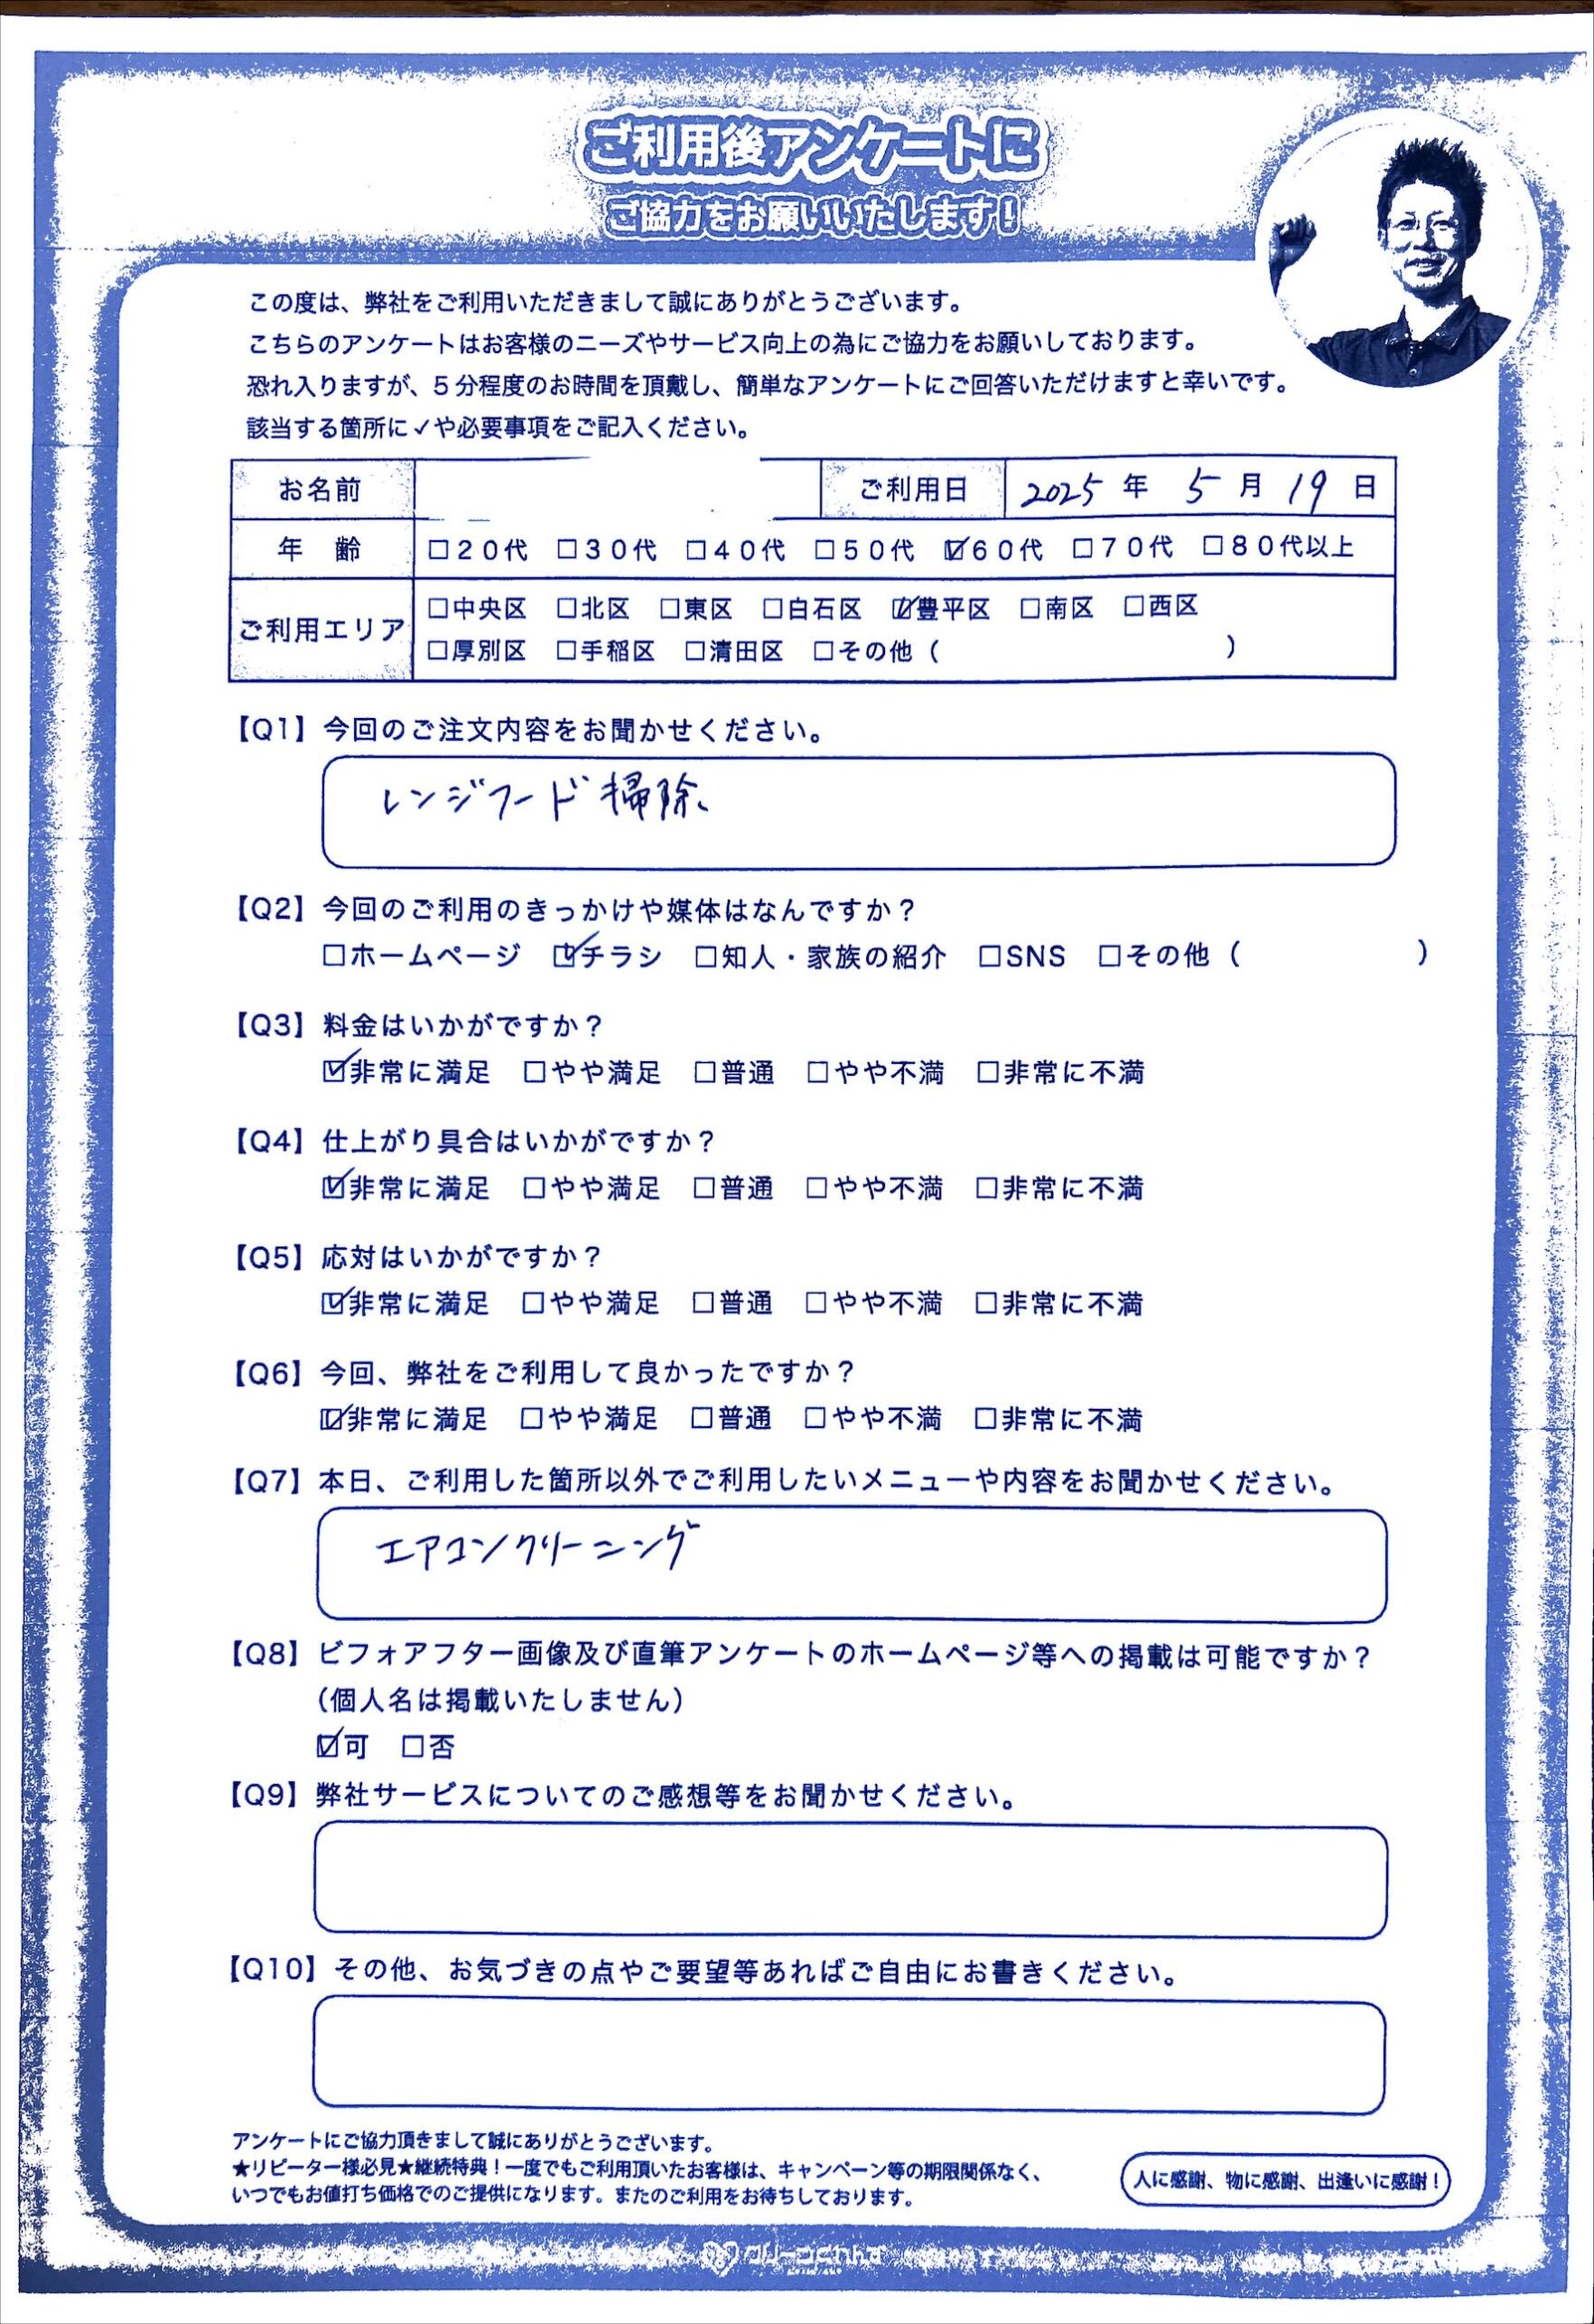 ご利用後アンケートに
ご協力をお願いいたします!
この度は、弊社をご利用いただきまして誠にありがとうございます。
こちらのアンケートはお客様のニーズやサービス向上の為にご協力をお願いしております。
恐れ入りますが、5分程度のお時間を頂戴し、簡単なアンケートにご回答いただけますと幸いです。
該当する箇所に✓や必要事項をご記入ください。
お名前 ご利用日 2025 年 5 月 19 日
年 齢 □20代 □30代 □40代 □50代 ☑60代 □70代 □80代以上
ご利用エリア □中央区 □北区 □東区 □白石区 ☑豊平区 □南区 □西区
□厚別区 □手稲区 □清田区 □その他 ( )
【Q1】今回のご注文内容をお聞かせください。
レンジフード掃除、
【Q2】今回のご利用のきっかけや媒体はなんですか?
□ホームページ ☑チラシ □知人・家族の紹介 □SNS □その他 ( )
【Q3】料金はいかがですか?
☑非常に満足 □やや満足 □普通 □やや不満 □非常に不満
【Q4】仕上がり具合はいかがですか?
☑非常に満足 □やや満足 □普通 □やや不満 □非常に不満
【Q5】応対はいかがですか?
☑非常に満足 □やや満足 □普通 □やや不満 □非常に不満
【Q6】今回、弊社をご利用して良かったですか?
☑非常に満足 □やや満足 □普通 □やや不満 □非常に不満
【Q7】本日、ご利用した箇所以外でご利用したいメニューや内容をお聞かせください。
エアコンクリーニング
【Q8】ビフォアフター画像及び直筆アンケートのホームページ等への掲載は可能ですか?
(個人名は掲載いたしません)
☑可 □否
【Q9】弊社サービスについてのご感想等をお聞かせください。
【Q10】その他、お気づきの点やご要望等あればご自由にお書きください。
アンケートにご協力頂きまして誠にありがとうございます。
★リピーター様必見★継続特典!一度でもご利用頂いたお客様は、キャンペーン等の期限関係なく、
いつでもお値打ち価格でのご提供になります。またのご利用をお待ちしております。
人に感謝、物に感謝、出逢いに感謝!